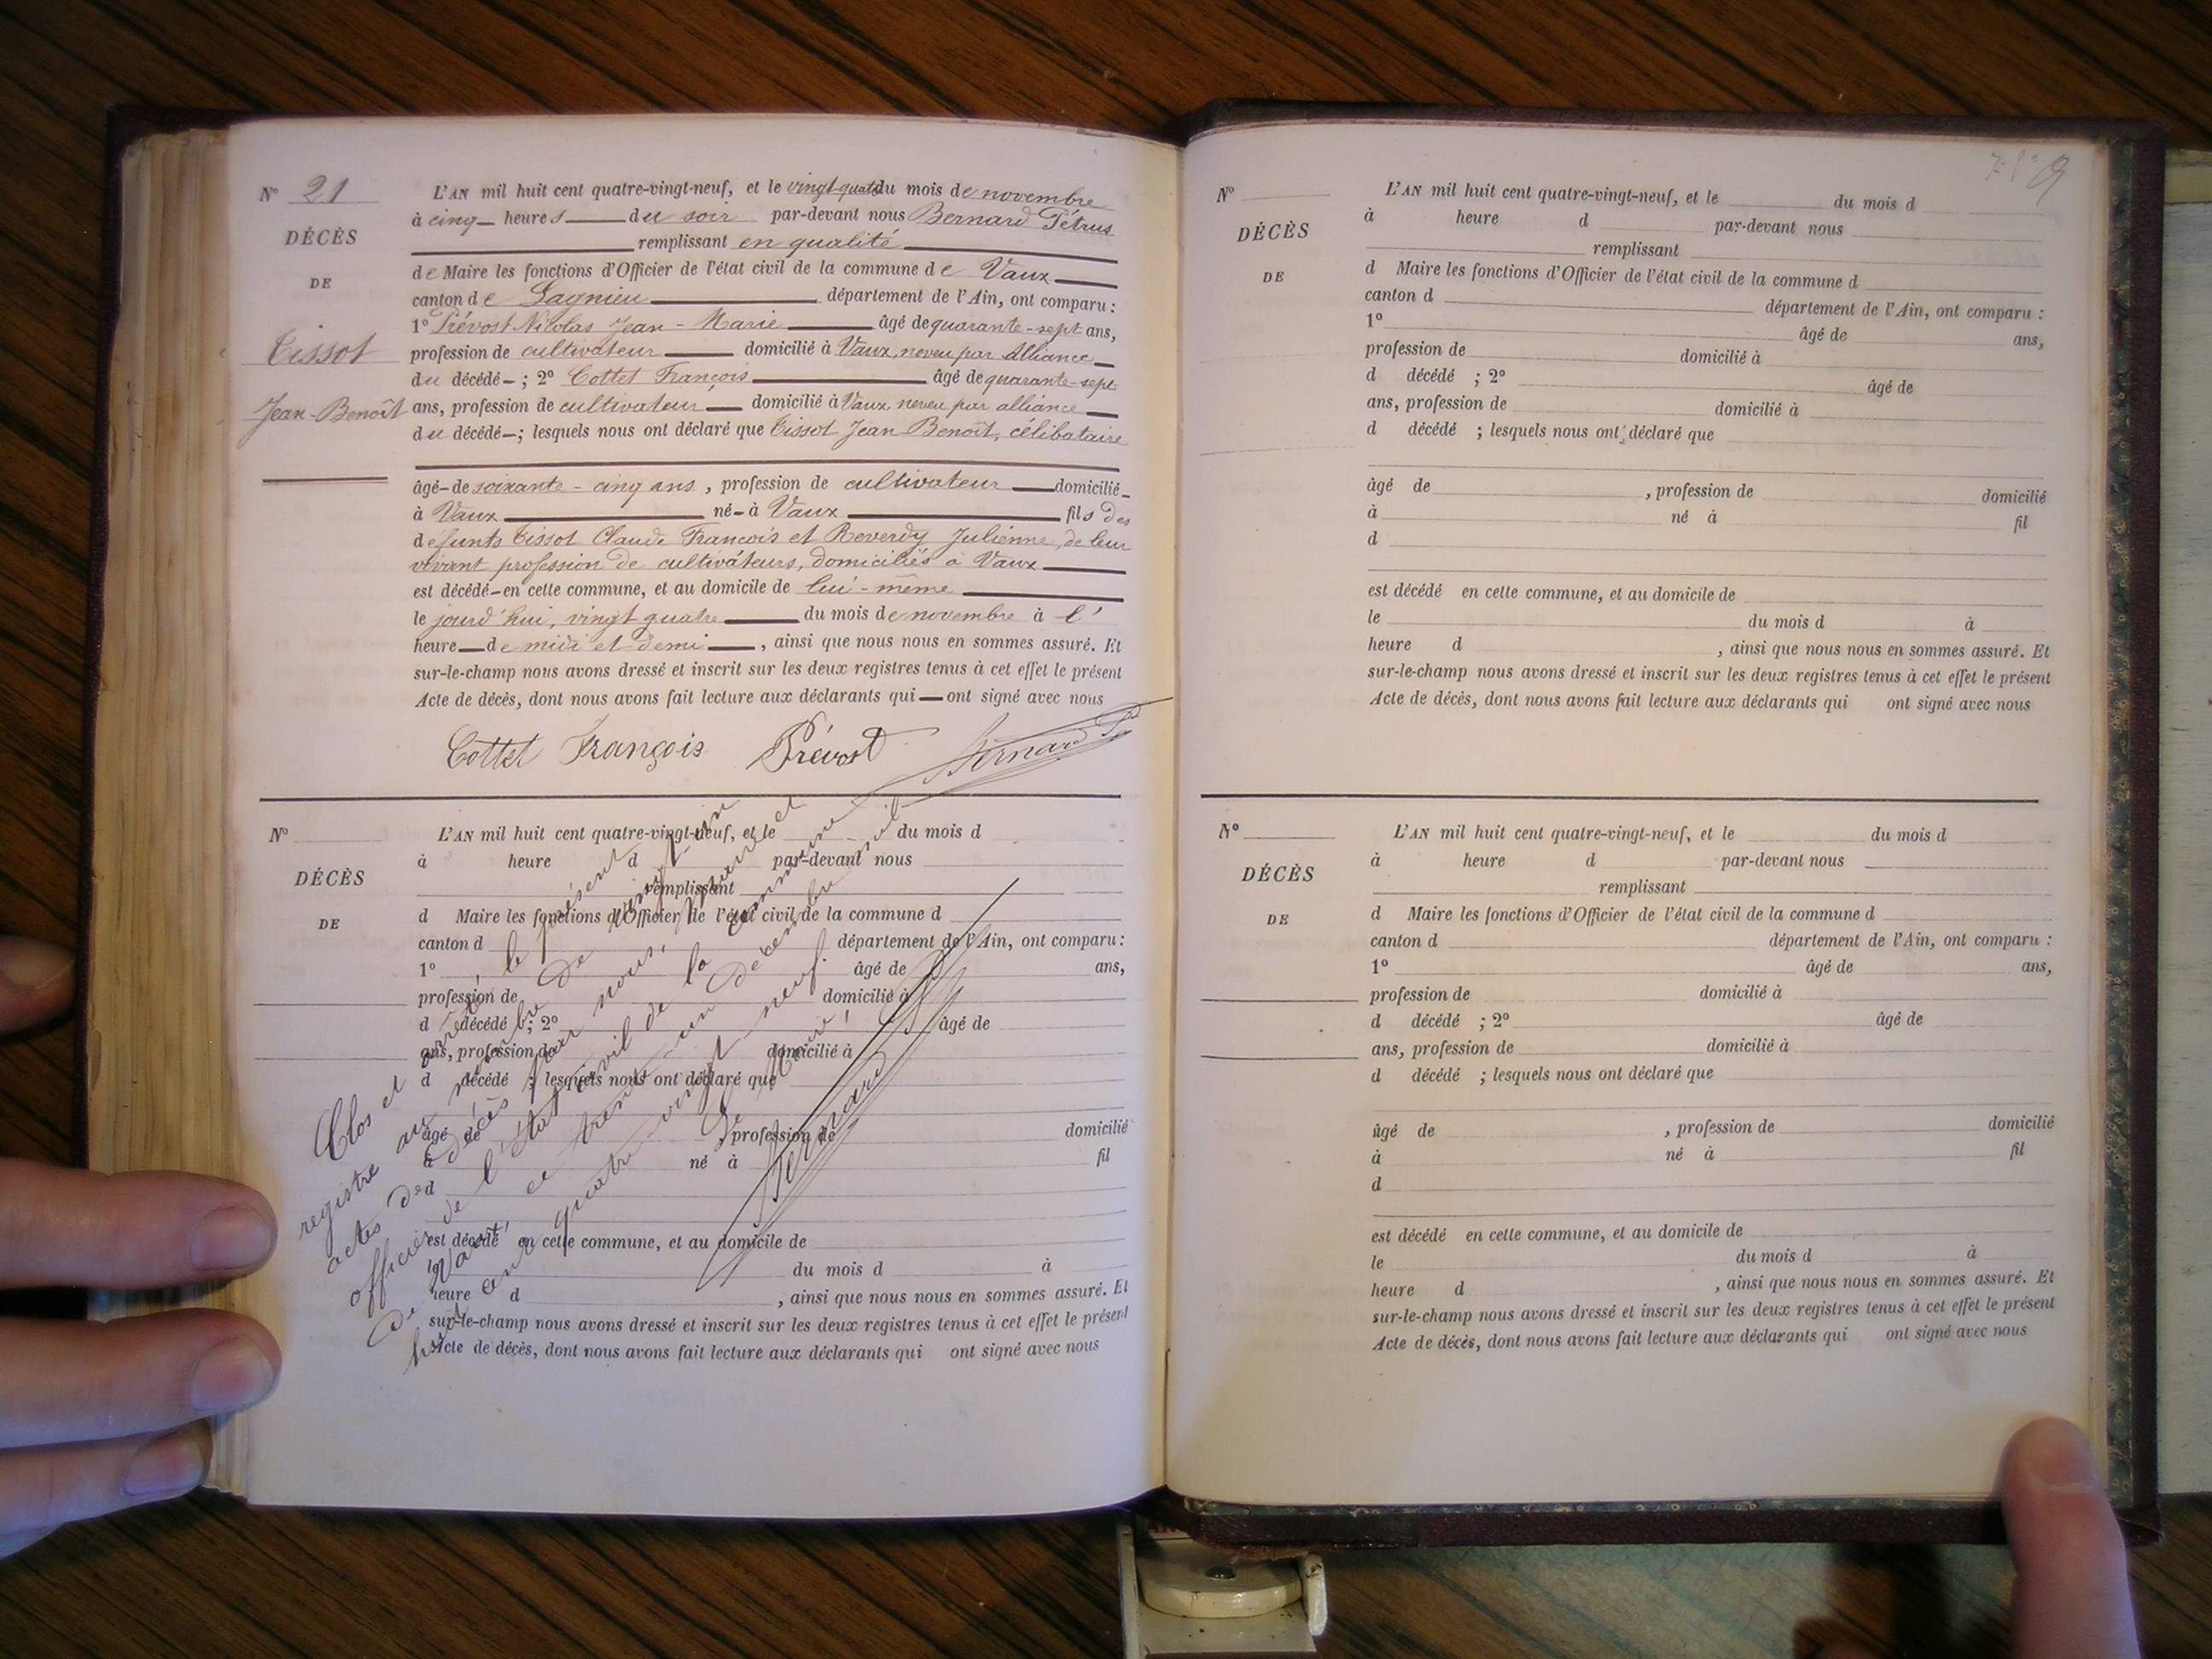 N° 21
DÉCÈS
DE
Tissot
Jean-Benoît
L'AN mil huit cent quatre-vingt-neuf, et le vingt-quatre du mois de novembre
à cinq heures du soir par-devant nous Bernard Pétrus
remplissant en qualité
de Maire les fonctions d'Officier de l'état civil de la commune de Vaux
canton de Lagnieu département de l'Ain, ont comparu :
1° Prévost Nicolas Jean-Marie âgé de quarante-sept ans,
profession de cultivateur domicilié à Vaux, neveu par alliance
du décédé ; 2° Cottet François âgé de quarante-sept
ans, profession de cultivateur domicilié à Vaux, neveu par alliance
du décédé ; lesquels nous ont déclaré que Tissot Jean Benoît, célibataire
âgé de soixante-cinq ans, profession de cultivateur domicilié
à Vaux né à Vaux fils des
defunts Tissot Claude François et Reverdy Julienne, de leur
vivant profession de cultivateurs, domiciliés à Vaux
est décédé en cette commune, et au domicile de lui-même
le jourd'hui, vingt quatre du mois de novembre à l'
heure de midi et demi, ainsi que nous nous en sommes assuré. Et
sur-le-champ nous avons dressé et inscrit sur les deux registres tenus à cet effet le présent
Acte de décès, dont nous avons fait lecture aux déclarants qui ont signé avec nous
Cottet François Prévost Bernard
N°
DÉCÈS
DE
L'AN mil huit cent quatre-vingt-neuf, et le du mois d
à heure d par-devant nous
remplissant
d Maire les fonctions d'Officier de l'état civil de la commune d
canton d département de l'Ain, ont comparu :
1° âgé de ans,
profession de domicilié à
d décédé ; 2° âgé de
ans, profession de domicilié à
d décédé ; lesquels nous ont déclaré que
âgé de , profession de domicilié
à né à fil
d
est décédé en cette commune, et au domicile de
le du mois d à
heure d , ainsi que nous nous en sommes assuré. Et
sur-le-champ nous avons dressé et inscrit sur les deux registres tenus à cet effet le présent
Acte de décès, dont nous avons fait lecture aux déclarants qui ont signé avec nous
Clos et arrêté le présent
registre au nombre de vingt-un
actes de décès par nous, Maire et
officier de l'état civil de la commune
de Vaux, ce trente-un décembre mil
huit cent quatre-vingt-neuf.
Le Maire,
Bernard
N°
DÉCÈS
DE
L'AN mil huit cent quatre-vingt-neuf, et le du mois d
à heure d par-devant nous
remplissant
d Maire les fonctions d'Officier de l'état civil de la commune d
canton d département de l'Ain, ont comparu :
1° âgé de ans,
profession de domicilié à
d décédé ; 2° âgé de
ans, profession de domicilié à
d décédé ; lesquels nous ont déclaré que
âgé de , profession de domicilié
à né à fil
d
est décédé en cette commune, et au domicile de
le du mois d à
heure d , ainsi que nous nous en sommes assuré. Et
sur-le-champ nous avons dressé et inscrit sur les deux registres tenus à cet effet le présent
Acte de décès, dont nous avons fait lecture aux déclarants qui ont signé avec nous
N°
DÉCÈS
DE
L'AN mil huit cent quatre-vingt-neuf, et le du mois d
à heure d par-devant nous
remplissant
d Maire les fonctions d'Officier de l'état civil de la commune d
canton d département de l'Ain, ont comparu :
1° âgé de ans,
profession de domicilié à
d décédé ; 2° âgé de
ans, profession de domicilié à
d décédé ; lesquels nous ont déclaré que
âgé de , profession de domicilié
à né à fil
d
est décédé en cette commune, et au domicile de
le du mois d à
heure d , ainsi que nous nous en sommes assuré. Et
sur-le-champ nous avons dressé et inscrit sur les deux registres tenus à cet effet le présent
Acte de décès, dont nous avons fait lecture aux déclarants qui ont signé avec nous